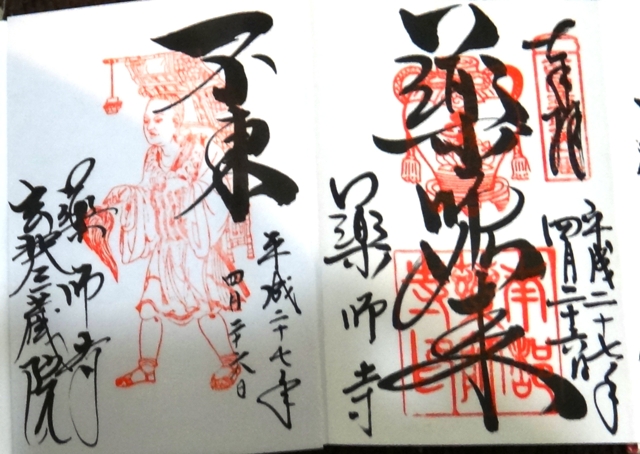 奉拝
平成二十七年
四月二十六日
薬師如来
薬師寺
不東
平成二十七年
四月二十六日
薬師寺
玄奘三蔵院